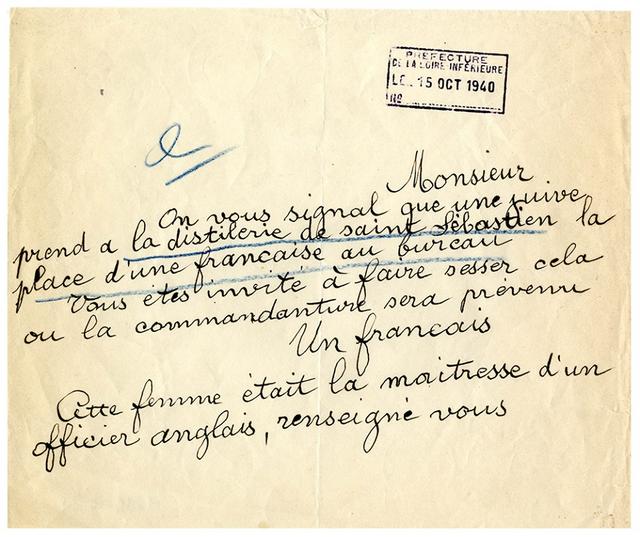 PREFECTURE
DE LA LOIRE INFÉRIEURE
LE 15 OCT 1940
No
Monsieur
On vous signal que une juive
prend a la distilerie de saint Sébastien la
place d'une francaise au bureau
Vous étes invité à faire sesser cela
ou la commandanture sera prévenu
Un francais
Cette femme était la maitresse d'un
officier anglais, renseigné vous